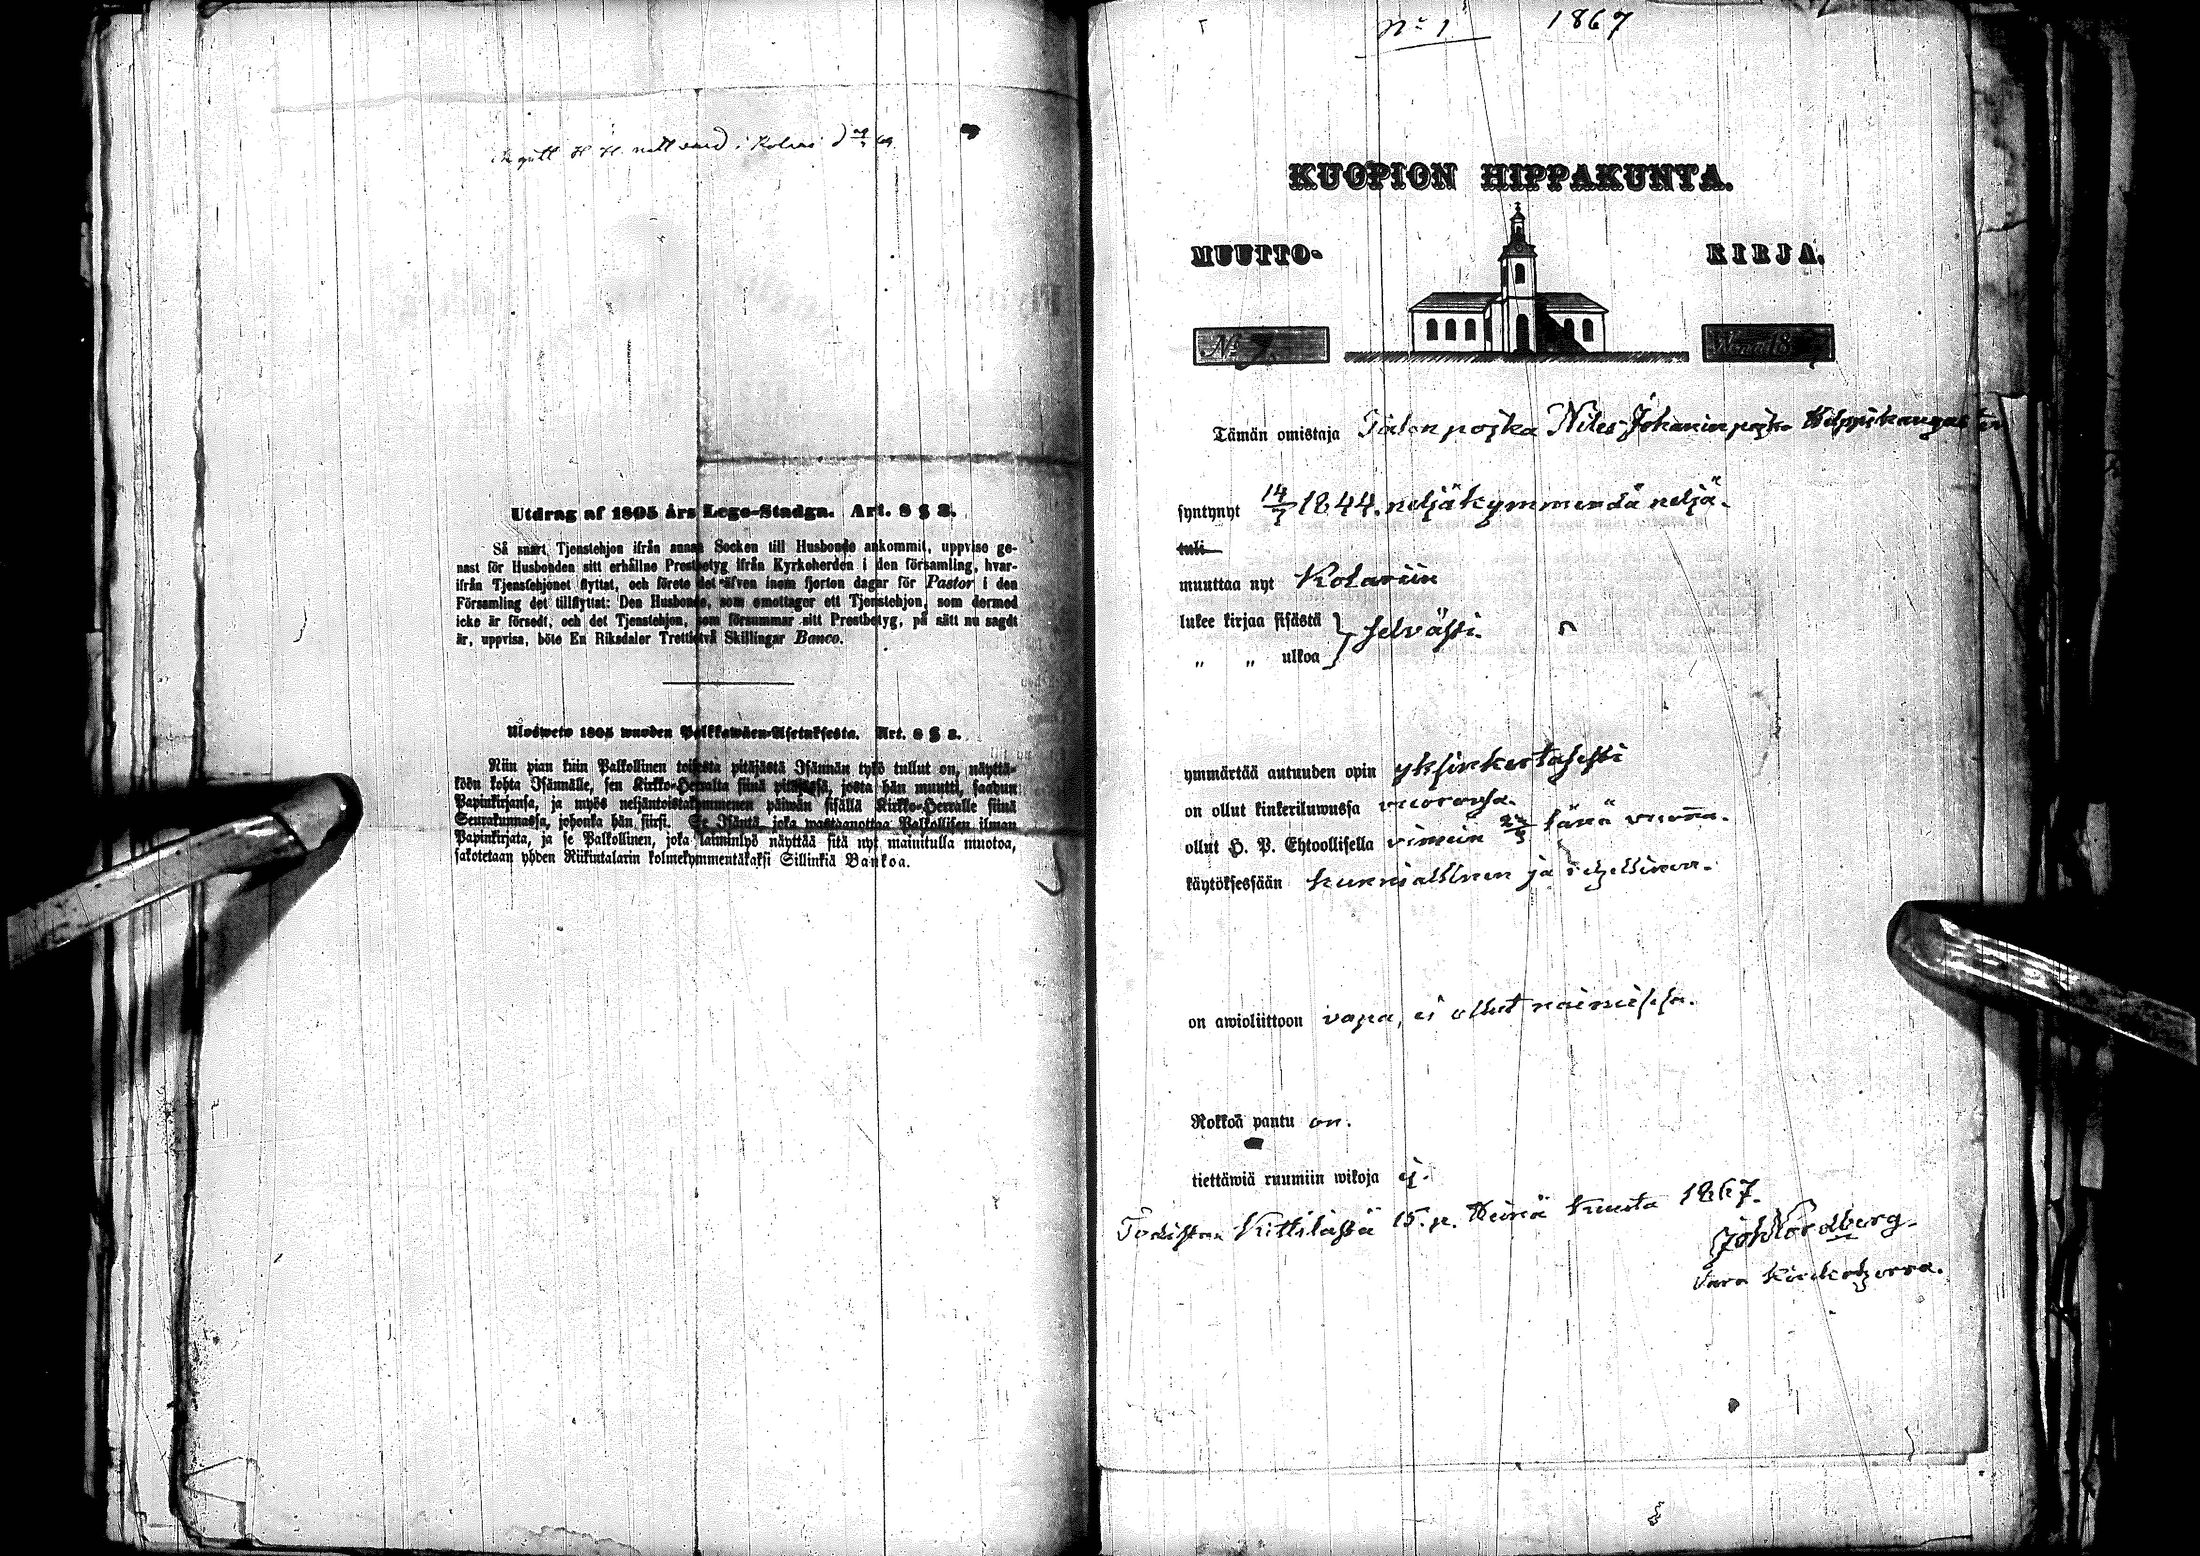 i Kolari
Utdrag af 1805 års Lego-Stadga. Art. 8 § 3.
Så snart Tjenstehjon ifrån annan Socken till Husbonde ankommit, uppvise ge-
nast för Husbonden sitt erhållne Prestbetyg ifrån Kyrkoherden i den församling, hvar-
ifrån Tjenstehjonet flyttat, och förete det äfven inom fjorton dagar för Pastor i den
Församling det tillflyttat: Den Husbonde, som emottager ett Tjenstehjon, som dermed
icke är försedt, och det Tjenstehjon, som försummar sitt Prestbetyg, på sätt nu sagdt
är, uppvisa, böte En Riksdaler Trettiotvå Skillingar Banco.
Ulosweto 1805 wuoden Palkkawäen-Asetuksesta. Art. 8 § 3.
Niin pian kuin Palkollinen toisesta pitäjästä Isännän tykö tullut on, näyttä-
köön kohta Isännälle, sen Kirkko-Herralta siinä pitäjässä, josta hän muutti, saadun
Papinkirjansa, ja myös neljäntoistakymmenen päiwän sisällä Kirkko-Herralle siinä
Seurakunnassa, johonka hän siirsi. Se Isäntä, joka wastaanottaa Palkollisen ilman
Papinkirjata, ja se Palkollinen, joka laiminlyö näyttää sitä nyt mainitulla muotoa,
sakotetaan yhden Riikintalarin kolmekymmentäkaksi Sillinkiä Bankoa.
No 1 1867
KUOPION HIPPAKUNTA.
MUUTTO- KIRJA.
No 7. Wuonna 18
Tämän omistaja Talonpojka Niles Johaninpojka
syntynyt 14/7 1844. neljäkymmendä neljä.
tuli
muuttaa nyt Kolariin
lukee kirjaa sisästä } selvästi.
„ „ ulkoa
ymmärtää autuuden opin yksinkertasesti
on ollut kinkeriluwussa vuoronsa.
ollut H. P. Ehtoollisella viimein tänä vuonna.
käytöksessään kunniallinen ja rehellinen.
on awioliittoon vapa, ei ollut naimisissa.
Rokkoa pantu on.
tiettäwiä ruumiin wikoja ej.
Todistan Kittilässä 15. p. Heinä kuuta 1867.
Joh Nordberg.
Vara Kirkoherra.